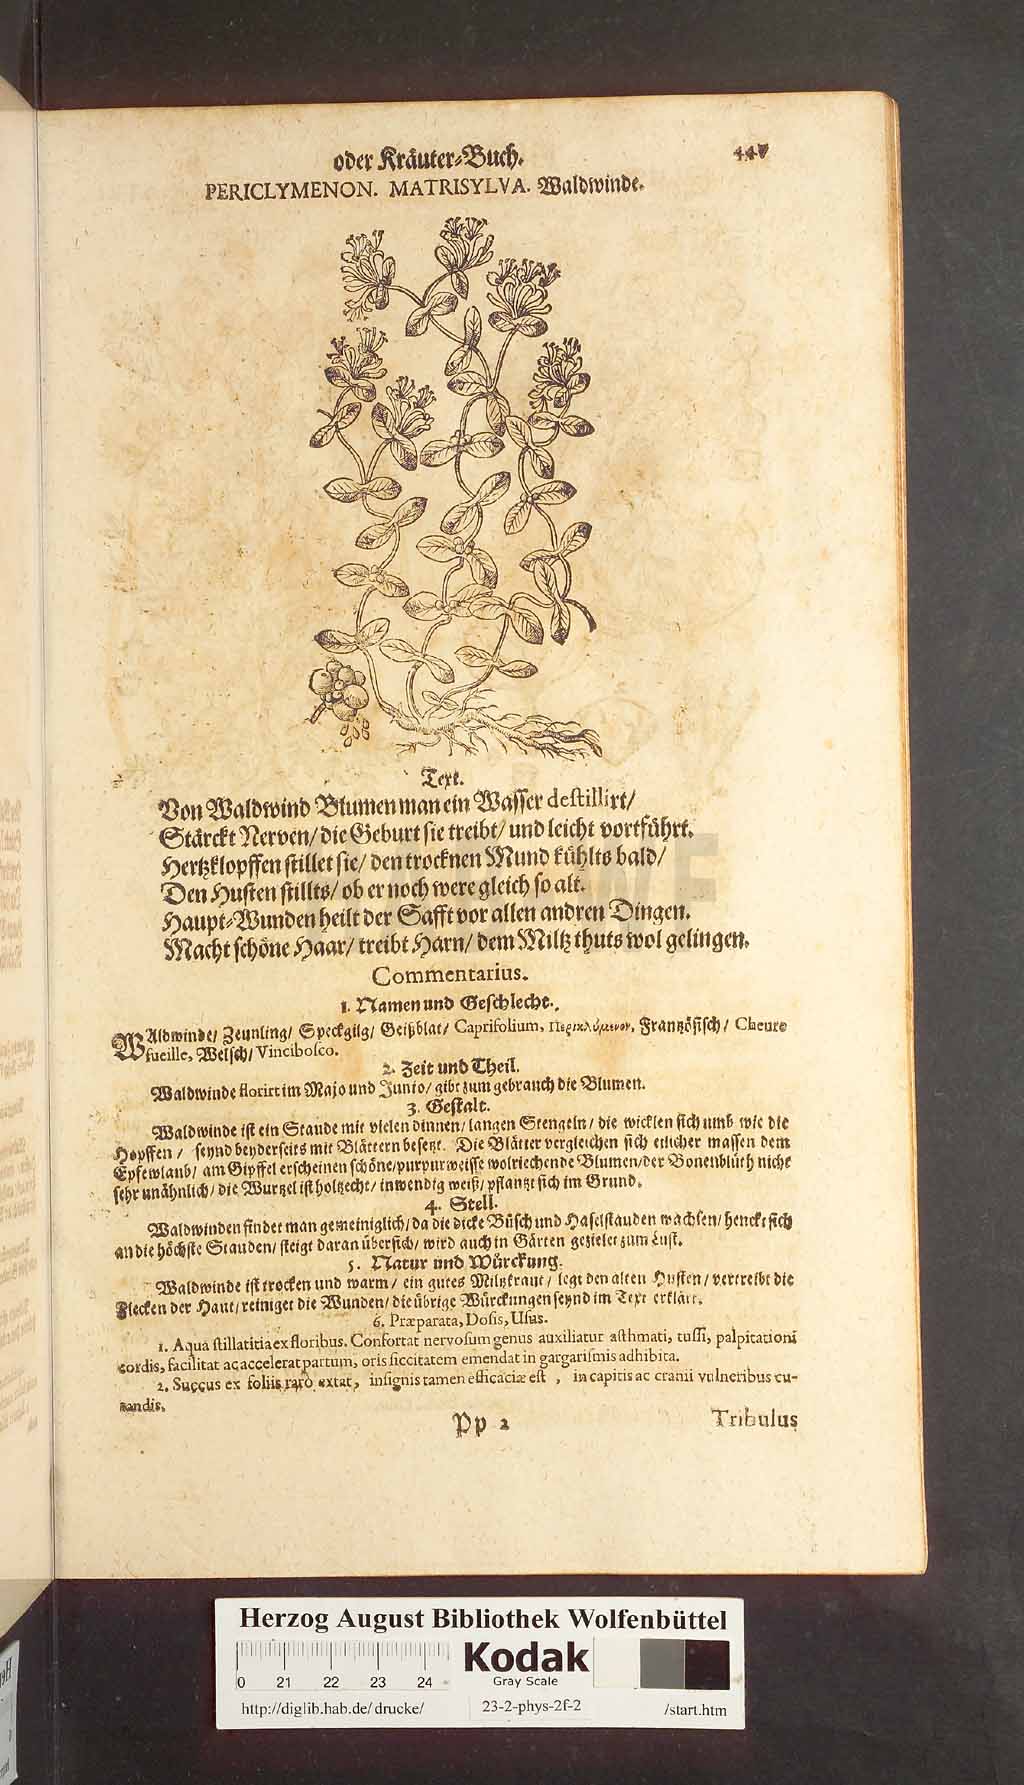 oder Kräuter-Buch.
447
PERICLYMENON. MATRISYLVA. Waldwinde.
Text.
Von Waldwind Blumen man ein Wasser destillirt/
Stärckt Nerven/ die Geburt sie treibt/ und leicht vortführt.
Hertzklopffen stillet sie/ den trocknen Mund kühlts bald/
Den Husten stillts/ ob er noch were gleich so alt.
Haupt-Wunden heilt der Safft vor allen andren Dingen.
Macht schöne Haar/ treibt Harn/ dem Miltz thuts wol gelingen.
Commentarius.
1. Namen und Geschlecht.
WAldwinde/ Zeunling/ Speckgilg/ Geißblat/ Caprifolium, Περικλύμενον, Frantzösisch/ Cheure
fueille, Welsch/ Vincibosco.
2. Zeit und Theil.
Waldwinde florirt im Majo und Junio/ gibt zum gebrauch die Blumen.
3. Gestalt.
Waldwinde ist ein Staude mit vielen dinnen/ langen Stengeln/ die wicklen sich umb wie die
Hopffen/ seynd beyderseits mit Blättern besetzt. Die Blätter vergleichen sich etlicher massen dem
Epfewlaub/ am Gipffel erscheinen schöne/ purpurweisse wolriechende Blumen/ der Bonenblüth nicht
sehr unähnlich/ die Wurtzel ist holtzecht/ inwendig weiß/ pflantzt sich im Grund.
4. Stell.
Waldwinden findet man gemeiniglich/ da die dicke Büsch und Haselstauden wachsen/ henckt sich
an die höchste Stauden/ steigt daran übersich/ wird auch in Gärten gezielet zum Lust.
5. Natur und Würckung.
Waldwinde ist trocken und warm/ ein gutes Miltzkraut/ legt den alten Husten/ vertreibt die
Flecken der Haut/ reiniget die Wunden/ die übrige Würckungen seynd im Text erklärt.
6. Præparata, Dosis, Usus.
1. Aqua stillatitia ex floribus. Confortat nervosum genus auxiliatur asthmati, tussi, palpitationi
cordis, facilitat ac accelerat partum, oris siccitatem emendat in gargarismis adhibita.
2. Succus ex foliis rarò extat, insignis tamen efficaciæ est, in capitis ac cranii vulneribus cu-
randis.
Pp 2
Tribulus
Herzog August Bibliothek Wolfenbüttel
Kodak
Gray Scale
0 21 22 23 24
http://diglib.hab.de/drucke/ 23-2-phys-2f-2 /start.htm